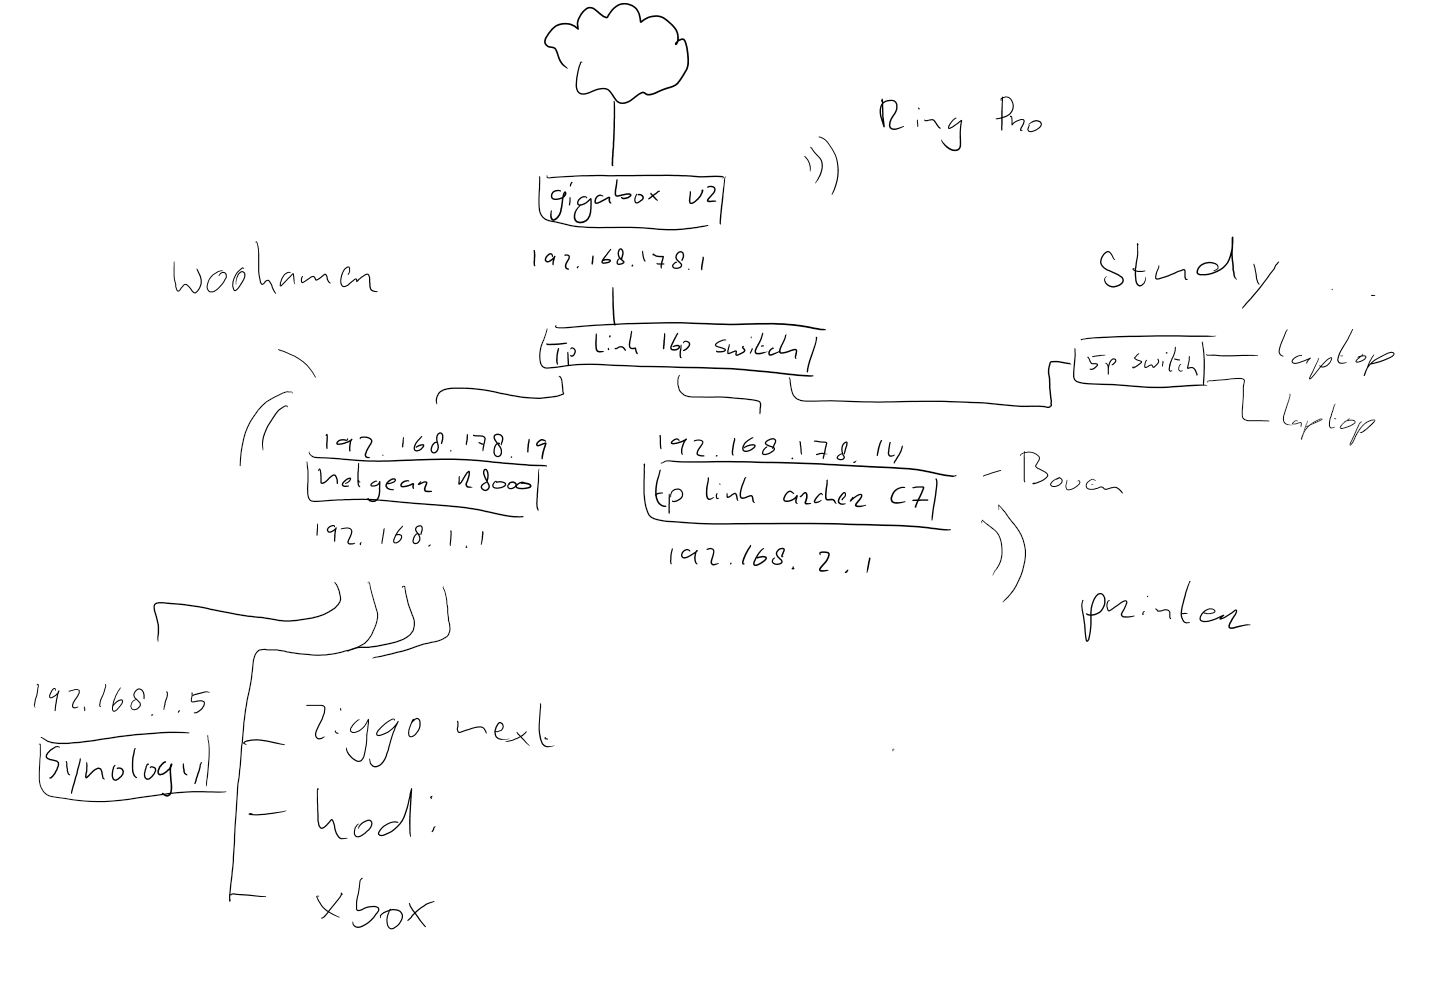 Ring Pro
gigabox v2
192.168.178.1
woohamer
Study
Tp link 16p switch
5p switch
laptop
laptop
192.168.178.19
netgear R8000
192.168.1.1
192.168.178.14
tp link archer C7
192.168.2.1
- Boven
printer
192.168.1.5
Synology
Ziggo next
kodi
xbox